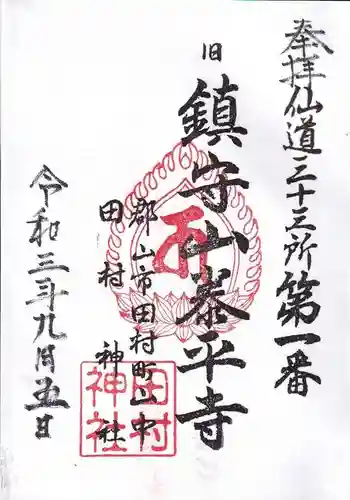 奉拝仙道三十三所第一番
旧
鎮守山泰平寺
郡山市田村町山中
田村神社
令和三年九月五日
田村神社